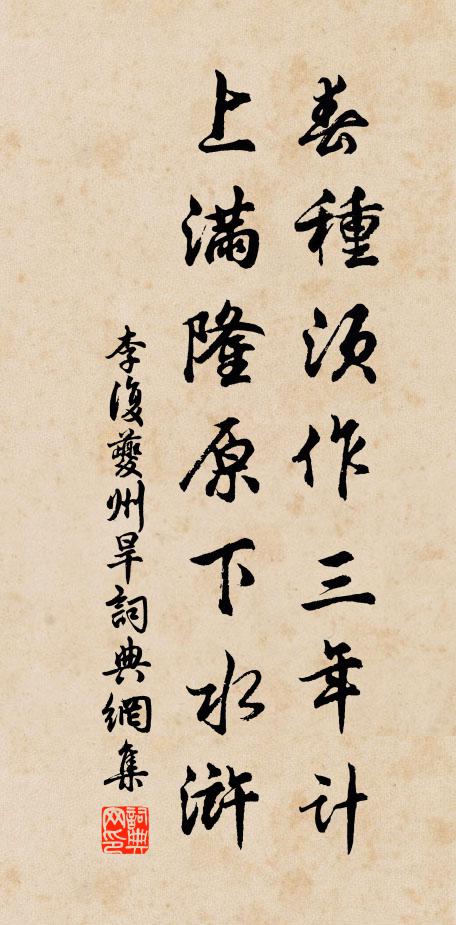 春種須作三年計
上滿隆原下水滸
李復夔州旱詞典網集
詞典網印